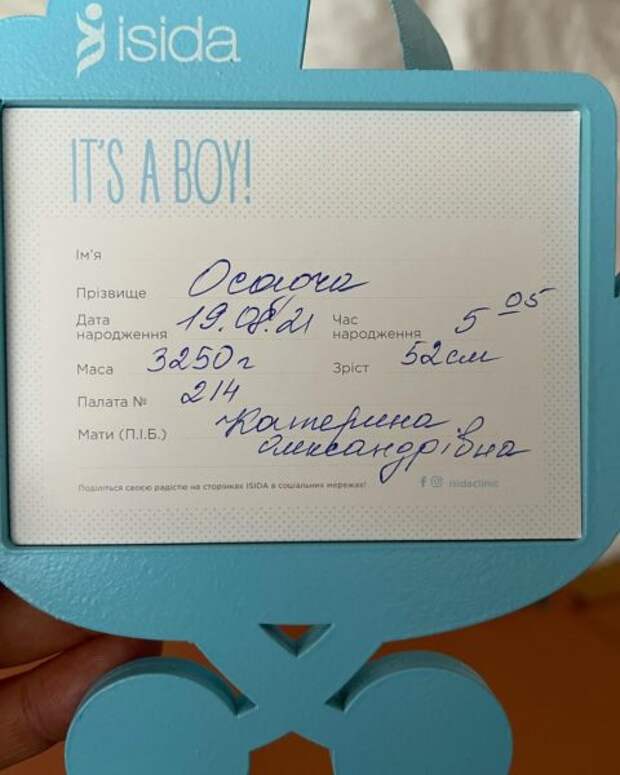 isida
IT'S A BOY!
Ім'я
Прізвище Осадча
Дата народження 19.08.21 Час народження 5 05
Маса 3250 г Зріст 52 см
Палата № 214
Мати (П.І.Б.) Катерина
Олександрівна
Поділіться своєю радістю на сторінках ISIDA в соціальних мережах! isidaclinic